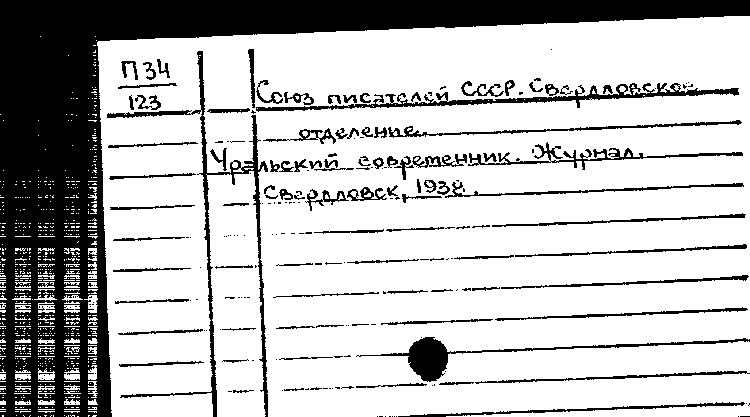 П34
123
Союз писателей СССР. Свердловское
отделение.
Уральский современник. Журнал.
Свердловск, 1938.